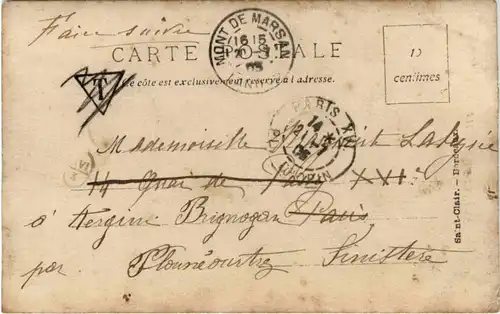 Faire suivre
CARTE POSTALE
Ce côté est exclusivement réservé à l'adresse.
MONT DE MARSAN
10
centimes
T
PARIS XVI
14
Mademoiselle
14 Quai de Passy XVIe
à Kergine Brignogan Paris
par Plounéourtrez Finistère
Saint-Clair.